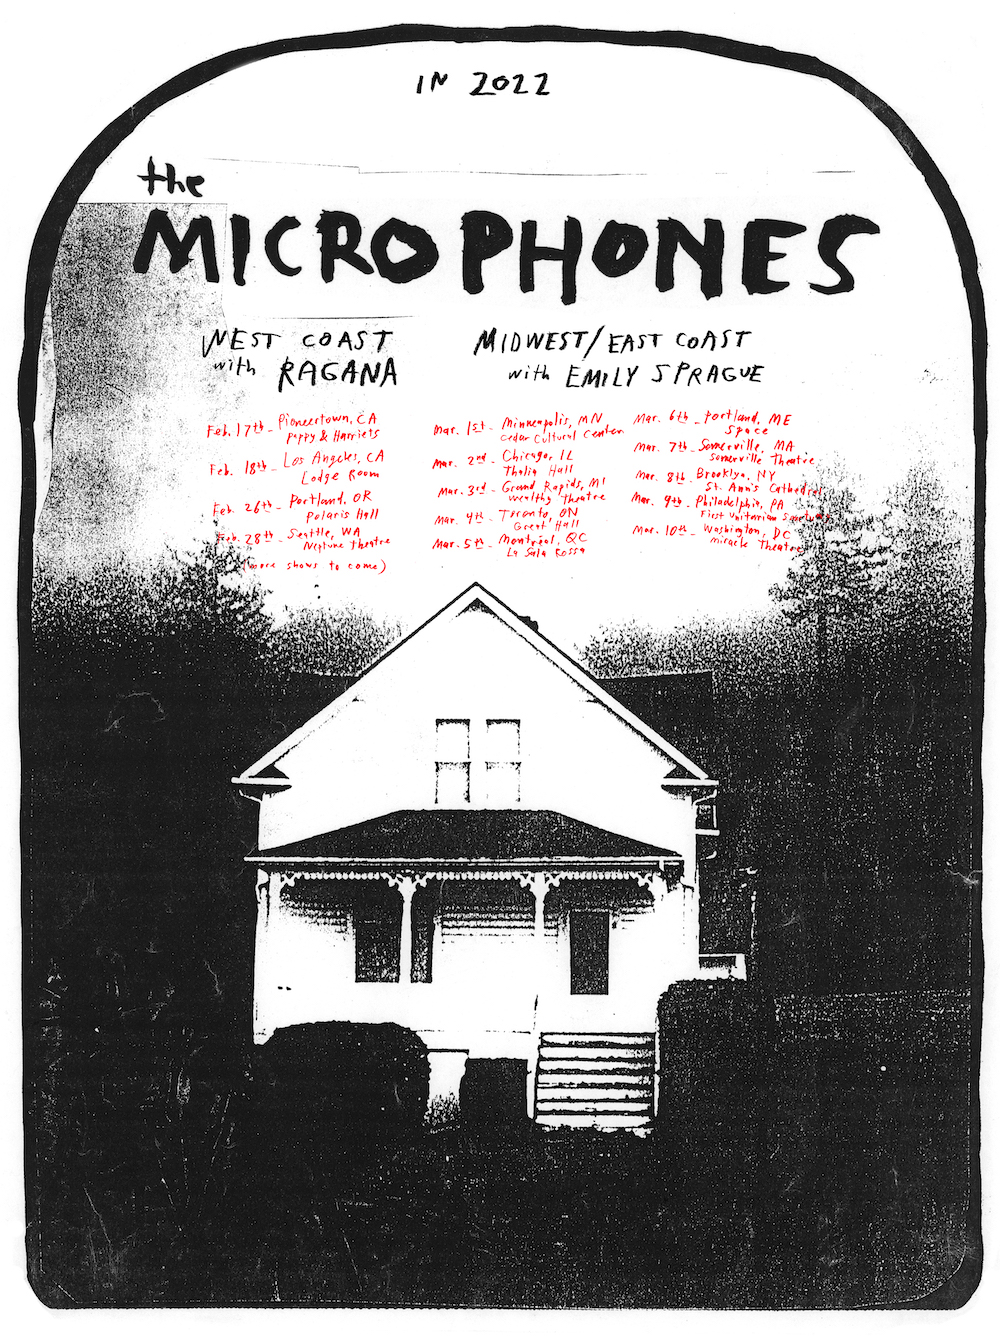 IN 2022
the
MICROPHONES
WEST COAST
with RAGANA
Feb. 17th - Pioneertown, CA
Pappy & Harriets
Feb. 18th - Los Angeles, CA
Lodge Room
Feb. 26th - Portland, OR
Polaris Hall
Feb. 28th - Seattle, WA
Neptune Theatre
(more shows to come)
MIDWEST/EAST COAST
with EMILY SPRAGUE
Mar. 1st - Minneapolis, MN
Cedar Cultural Center
Mar. 2nd - Chicago, IL
Thalia Hall
Mar. 3rd - Grand Rapids, MI
Wealthy Theatre
Mar. 4th - Toronto, ON
Great Hall
Mar. 5th - Montréal, QC
La Sala Rossa
Mar. 6th - Portland, ME
Space
Mar. 7th - Somerville, MA
Somerville Theatre
Mar. 8th - Brooklyn, NY
St. Ann's Cathedral
Mar. 9th - Philadelphia, PA
First Unitarian Sanctuary
Mar. 10th - Washington, DC
Miracle Theatre